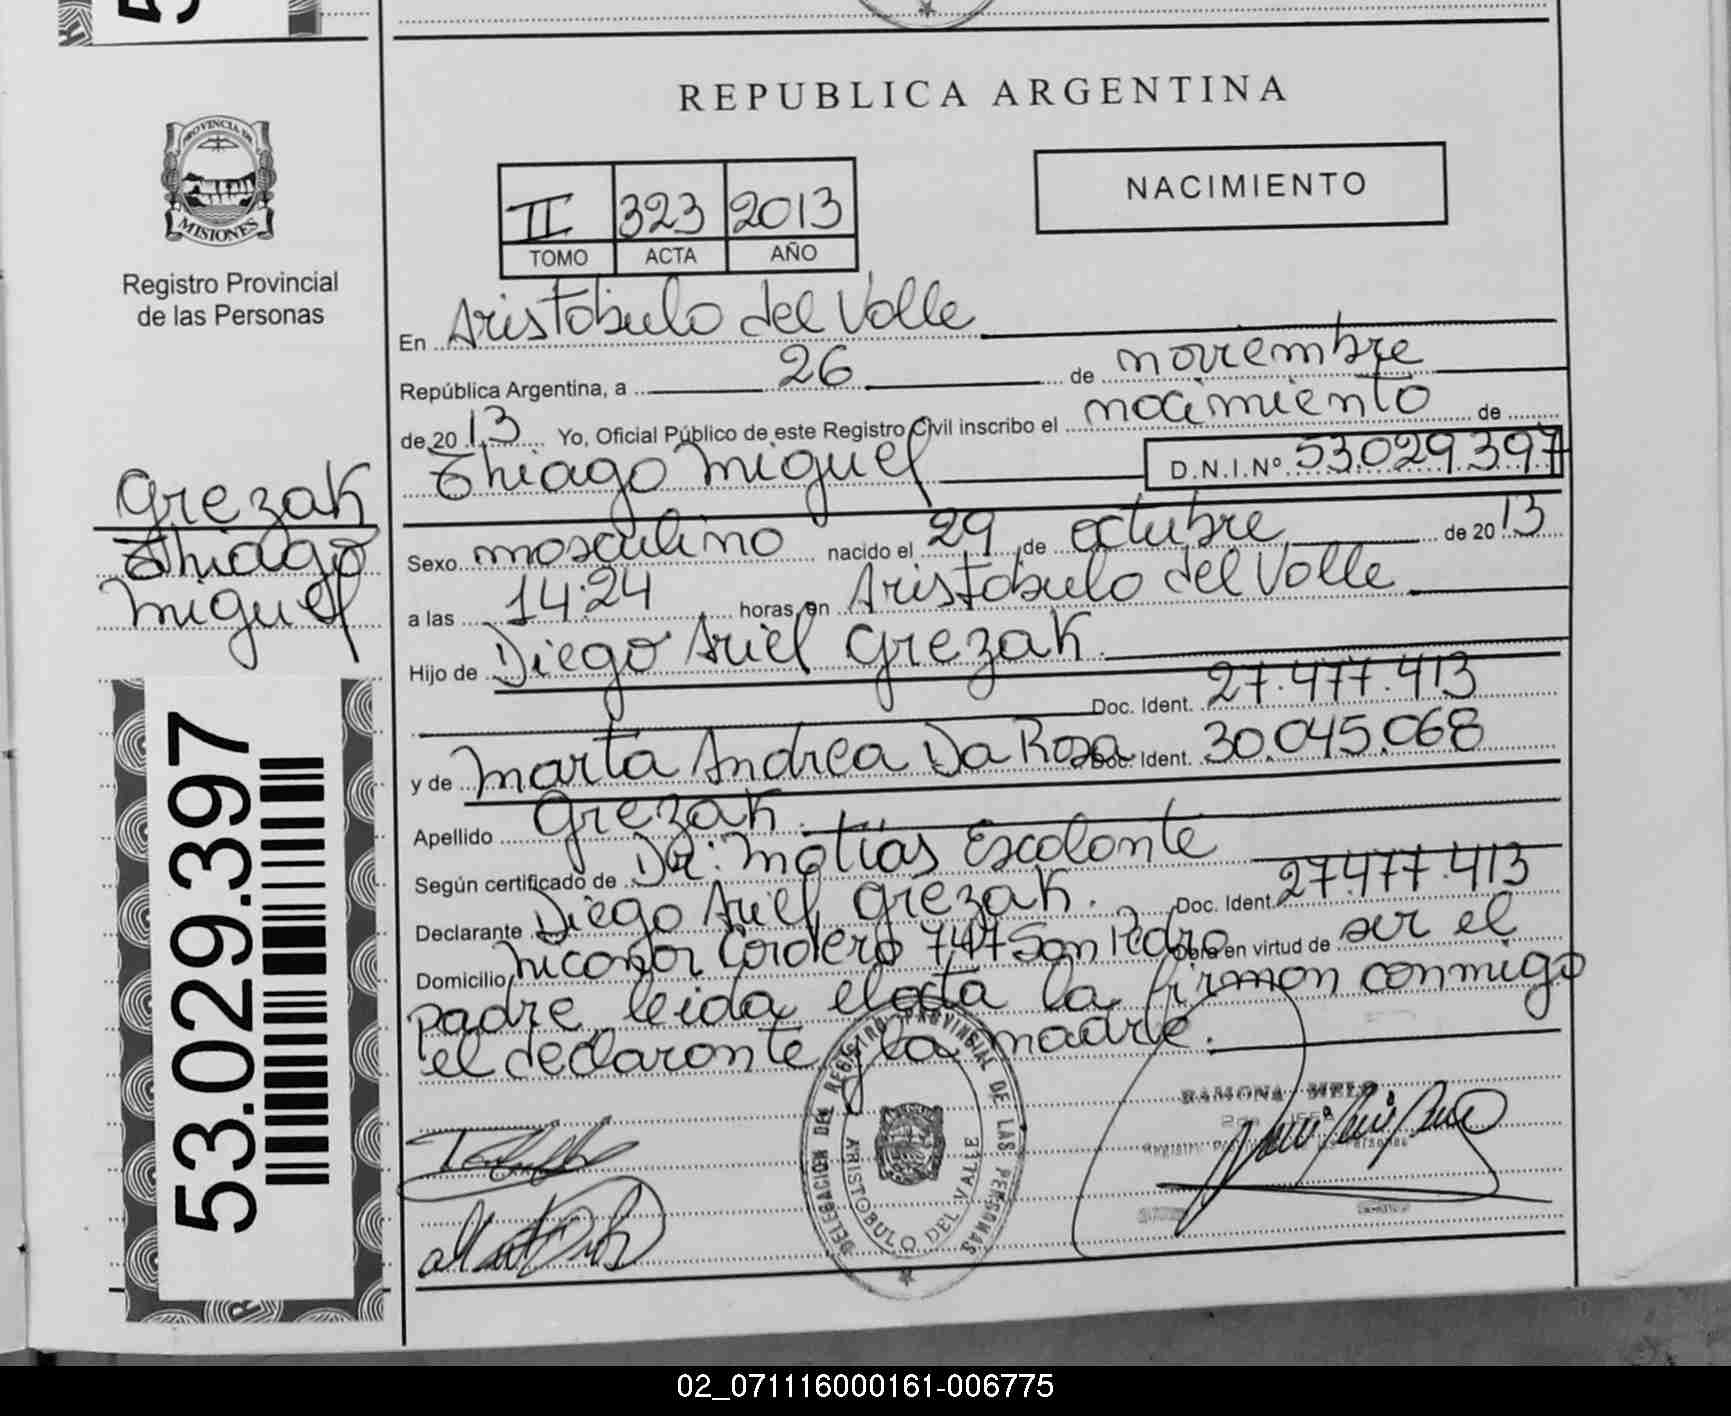 REPUBLICA ARGENTINA
PROVINCIA DE
MISIONES
Registro Provincial
de las Personas
II 323 2013
TOMO ACTA AÑO
NACIMIENTO
En Aristóbulo del Valle
República Argentina, a 26 de noviembre
de 20 13 Yo, Oficial Público de este Registro Civil inscribo el nacimiento de
Thiago Miguel D.N.I.Nº 53.029.397
Grezak
Thiago
Miguel
Sexo masculino nacido el 29 de octubre de 20 13
a las 14:24 horas, en Aristóbulo del Valle
Hijo de Diego Ariel Grezak.
Doc. Ident. 27.477.413
y de Marta Andrea Da Rosa Doc. Ident. 30.045.068
Apellido Grezak.
Según certificado de Dr: Matías Escalante
Declarante Diego Ariel Grezak. Doc. Ident. 27.477.413
Domicilio Nicanor Cordero 747 San Pedro Obra en virtud de ser el
padre leída el acta la firman conmigo
el declarante y la madre.
53.029.397
DELEGACION DEL REGISTRO PROVINCIAL DE LAS PERSONAS
ARISTOBULO DEL VALLE
RAMONA
02_071116000161-006775